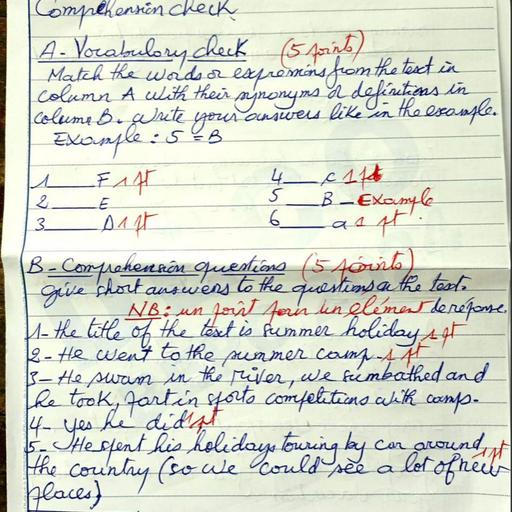 Comprehension check
A - Vocabulary check (5 points)
Match the words or expressions from the text in
column A with their synonyms or definitions in
column B. Write your answers like in the example.
Example : 5 = B
1 F 1 pt 4 C 1 pt
2 E 5 B - Example
3 D 1 pt 6 a 1 pt.
B - Comprehension questions (5 points)
Give short answers to the questions on the text.
NB : un point pour un élément de réponse.
1- the title of the text is summer holiday 1 pt
2 - He went to the summer camp. 1 pt
3 - He swam in the river, we sumbathed and
he took, part in sports competitions with camp.
4 - yes he did 1 pt
5 - He spent his holidays touring by car around 1 pt
the country (so we could see a lot of new
places)